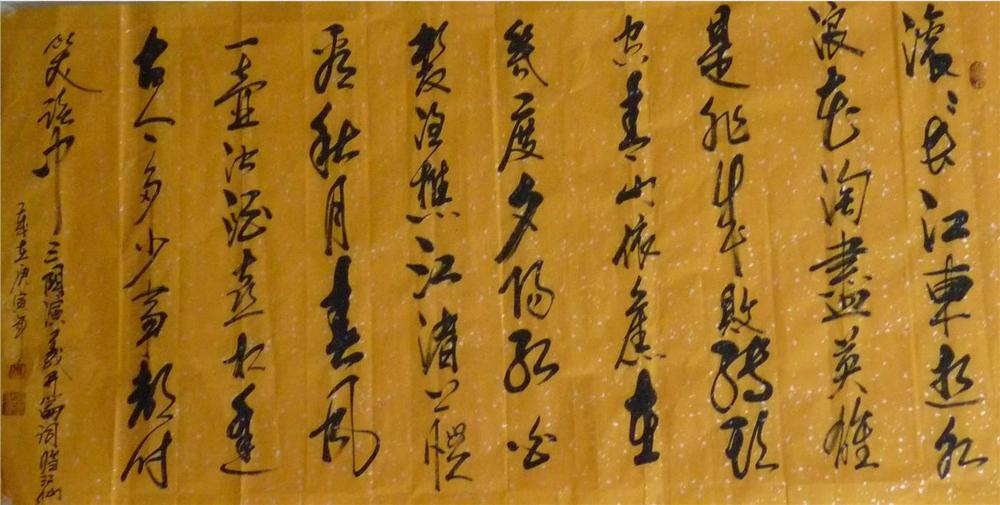 滚〻長江東逝水
浪花淘盡英雄
是非成敗轉頭
空青山依舊在
幾度夕陽紅白
髮漁樵江渚上慣
看秋月春風
一壺濁酒喜相逢
古今多少事都付
笑談中 三國演義开篇詞臨江仙
在庚寅年